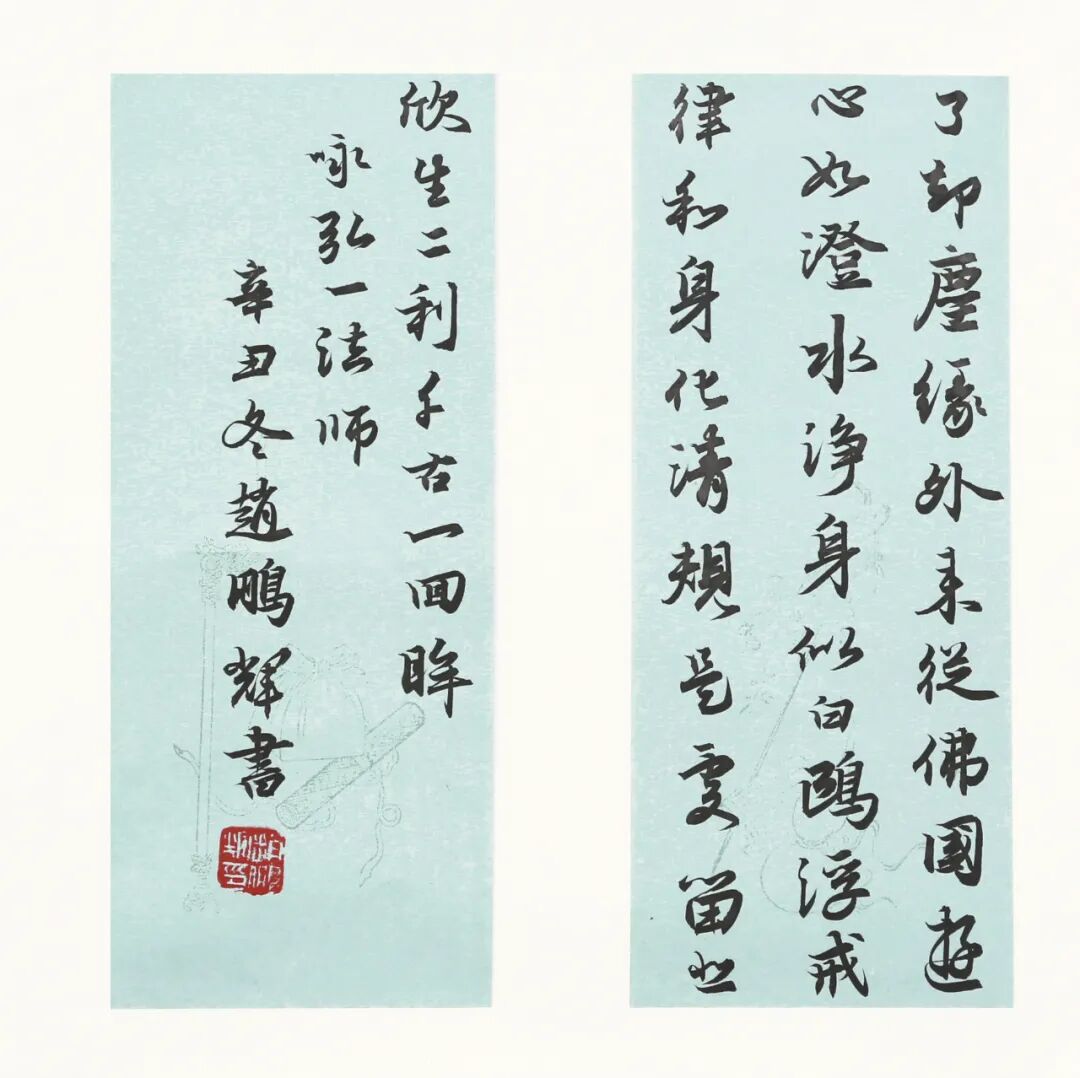 了却塵緣外来從佛國遊
心如澄水净身似白鷗浮戒
律和身化清規是處留悲
欣生二利千古一回眸
咏弘一法師
辛丑冬趙鵬輝書